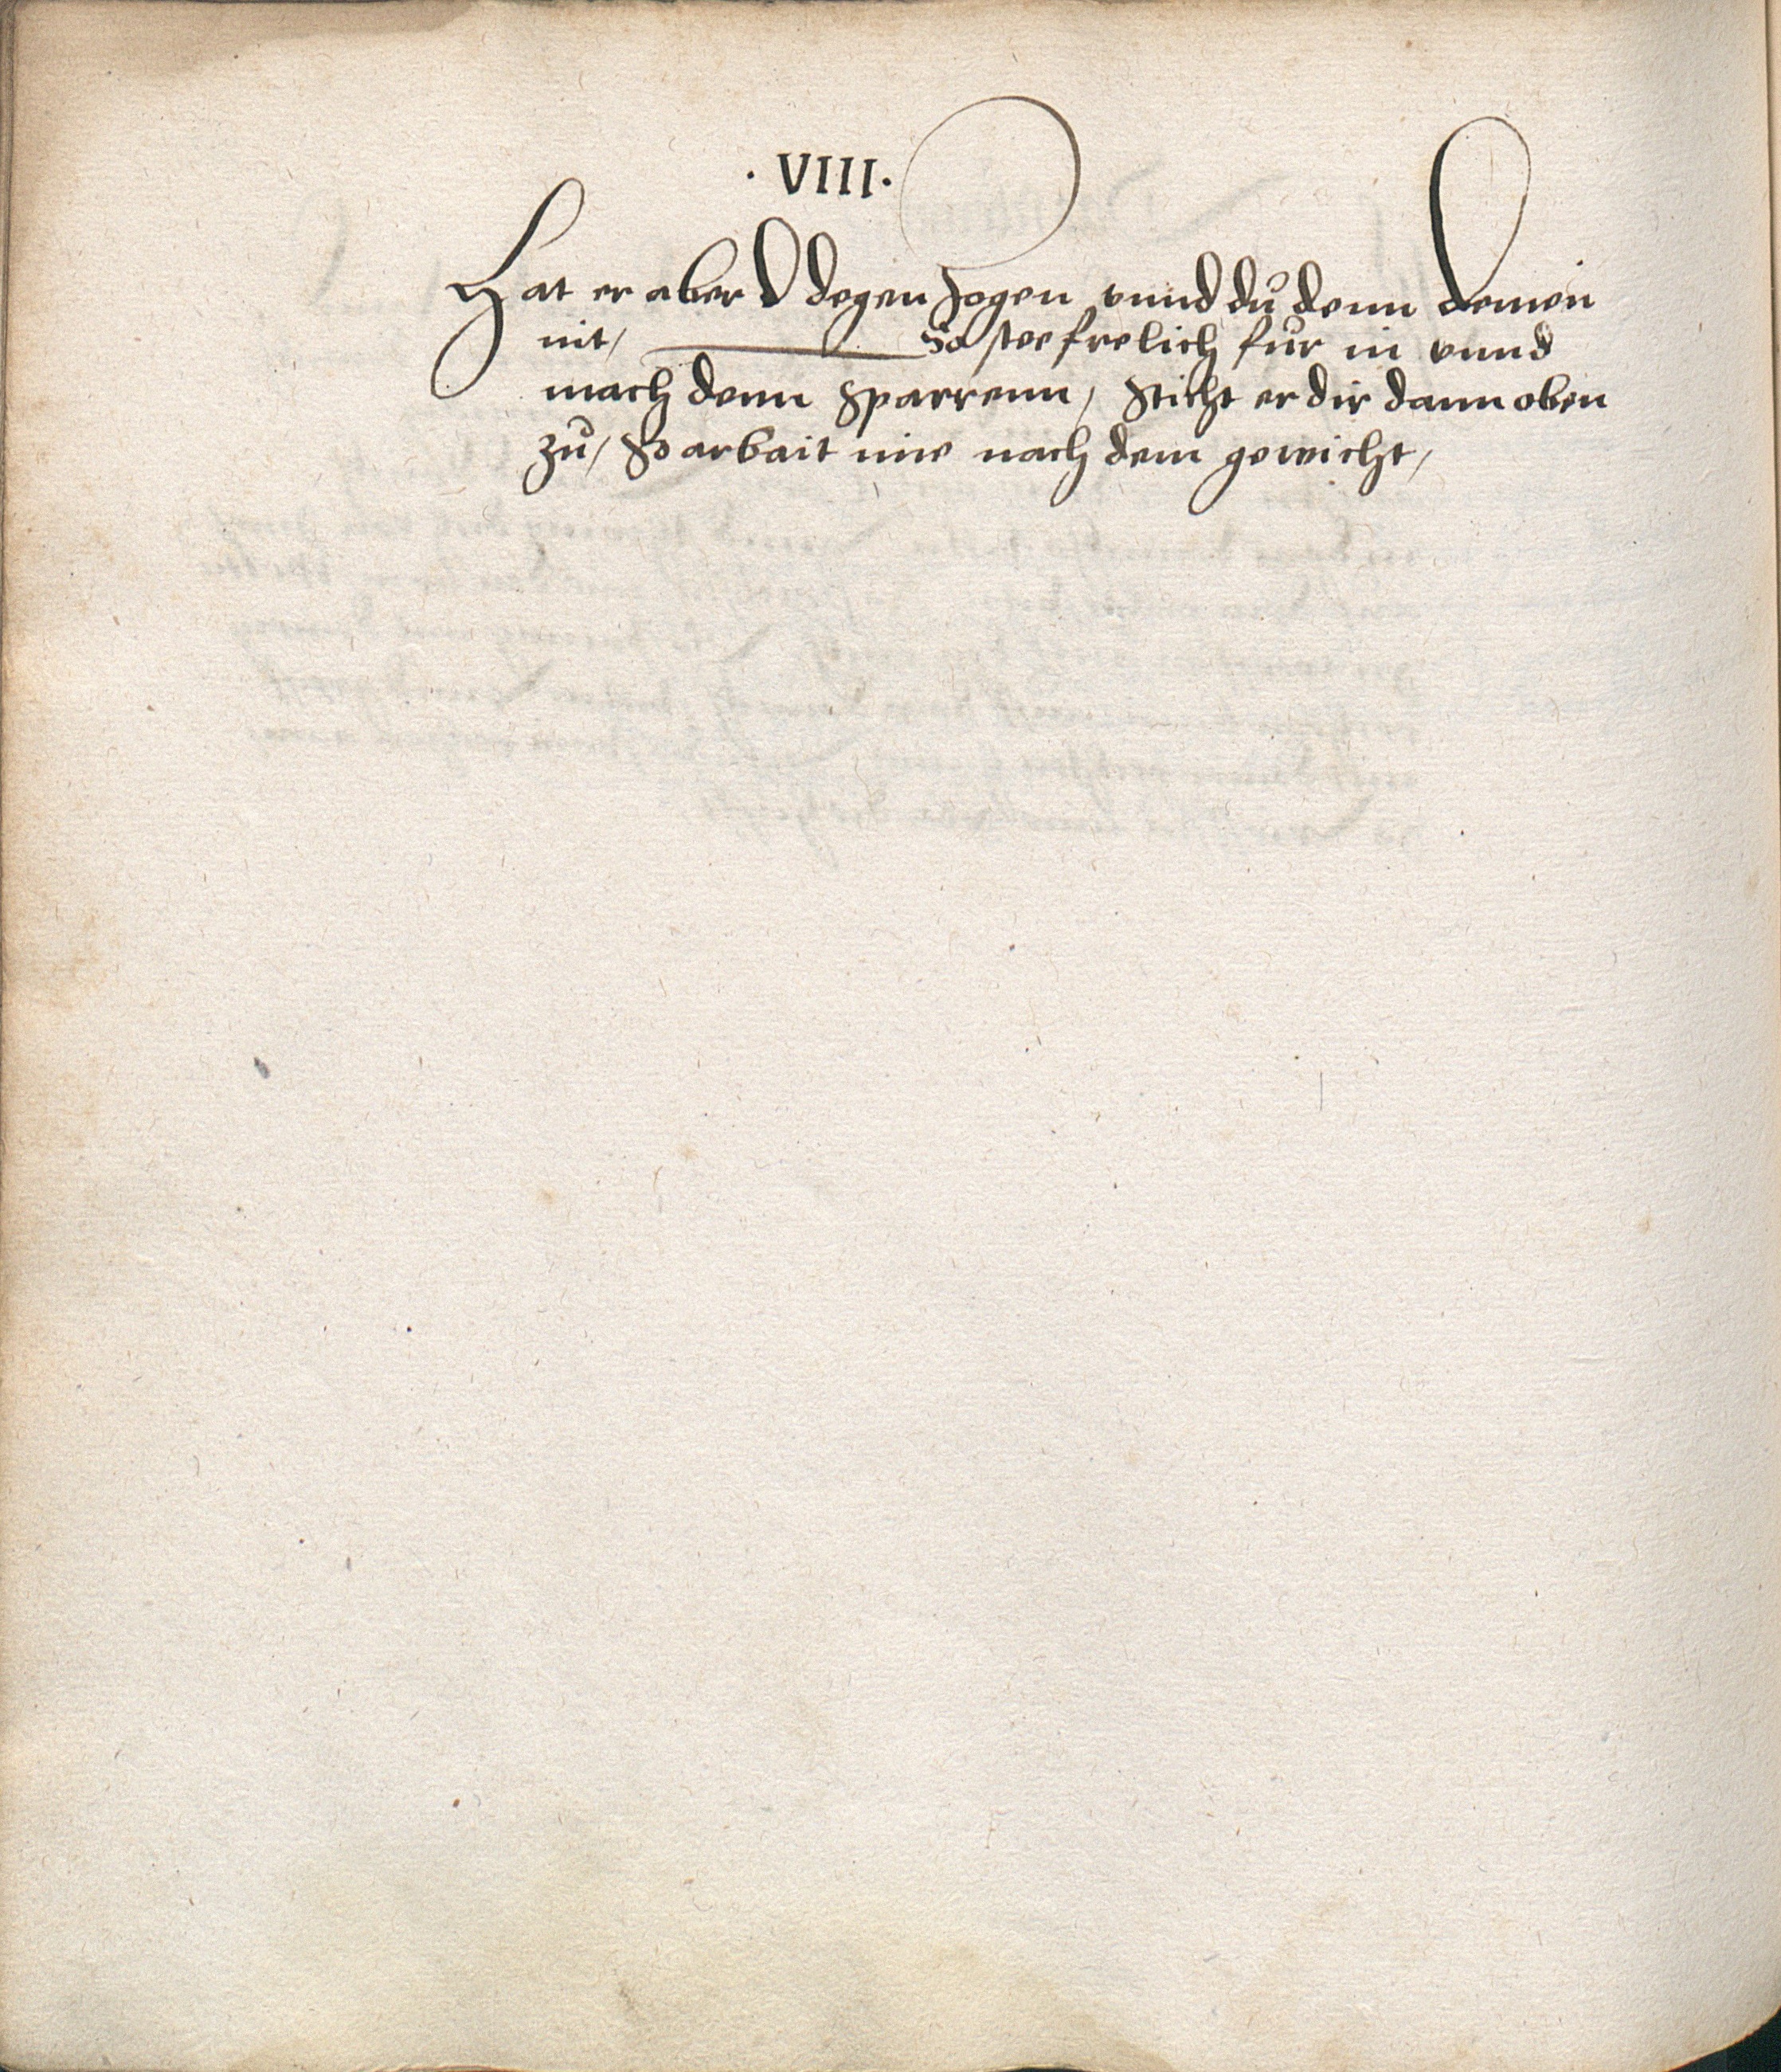 · VIII ·
Hat er aber d degen zogen vnnd dů denn deinen
nit / So stee frelich fůr in vnnd
mach denn Sparrenn / Sticht er dir dann oben
zů / So arbait mie nach dem gewicht /